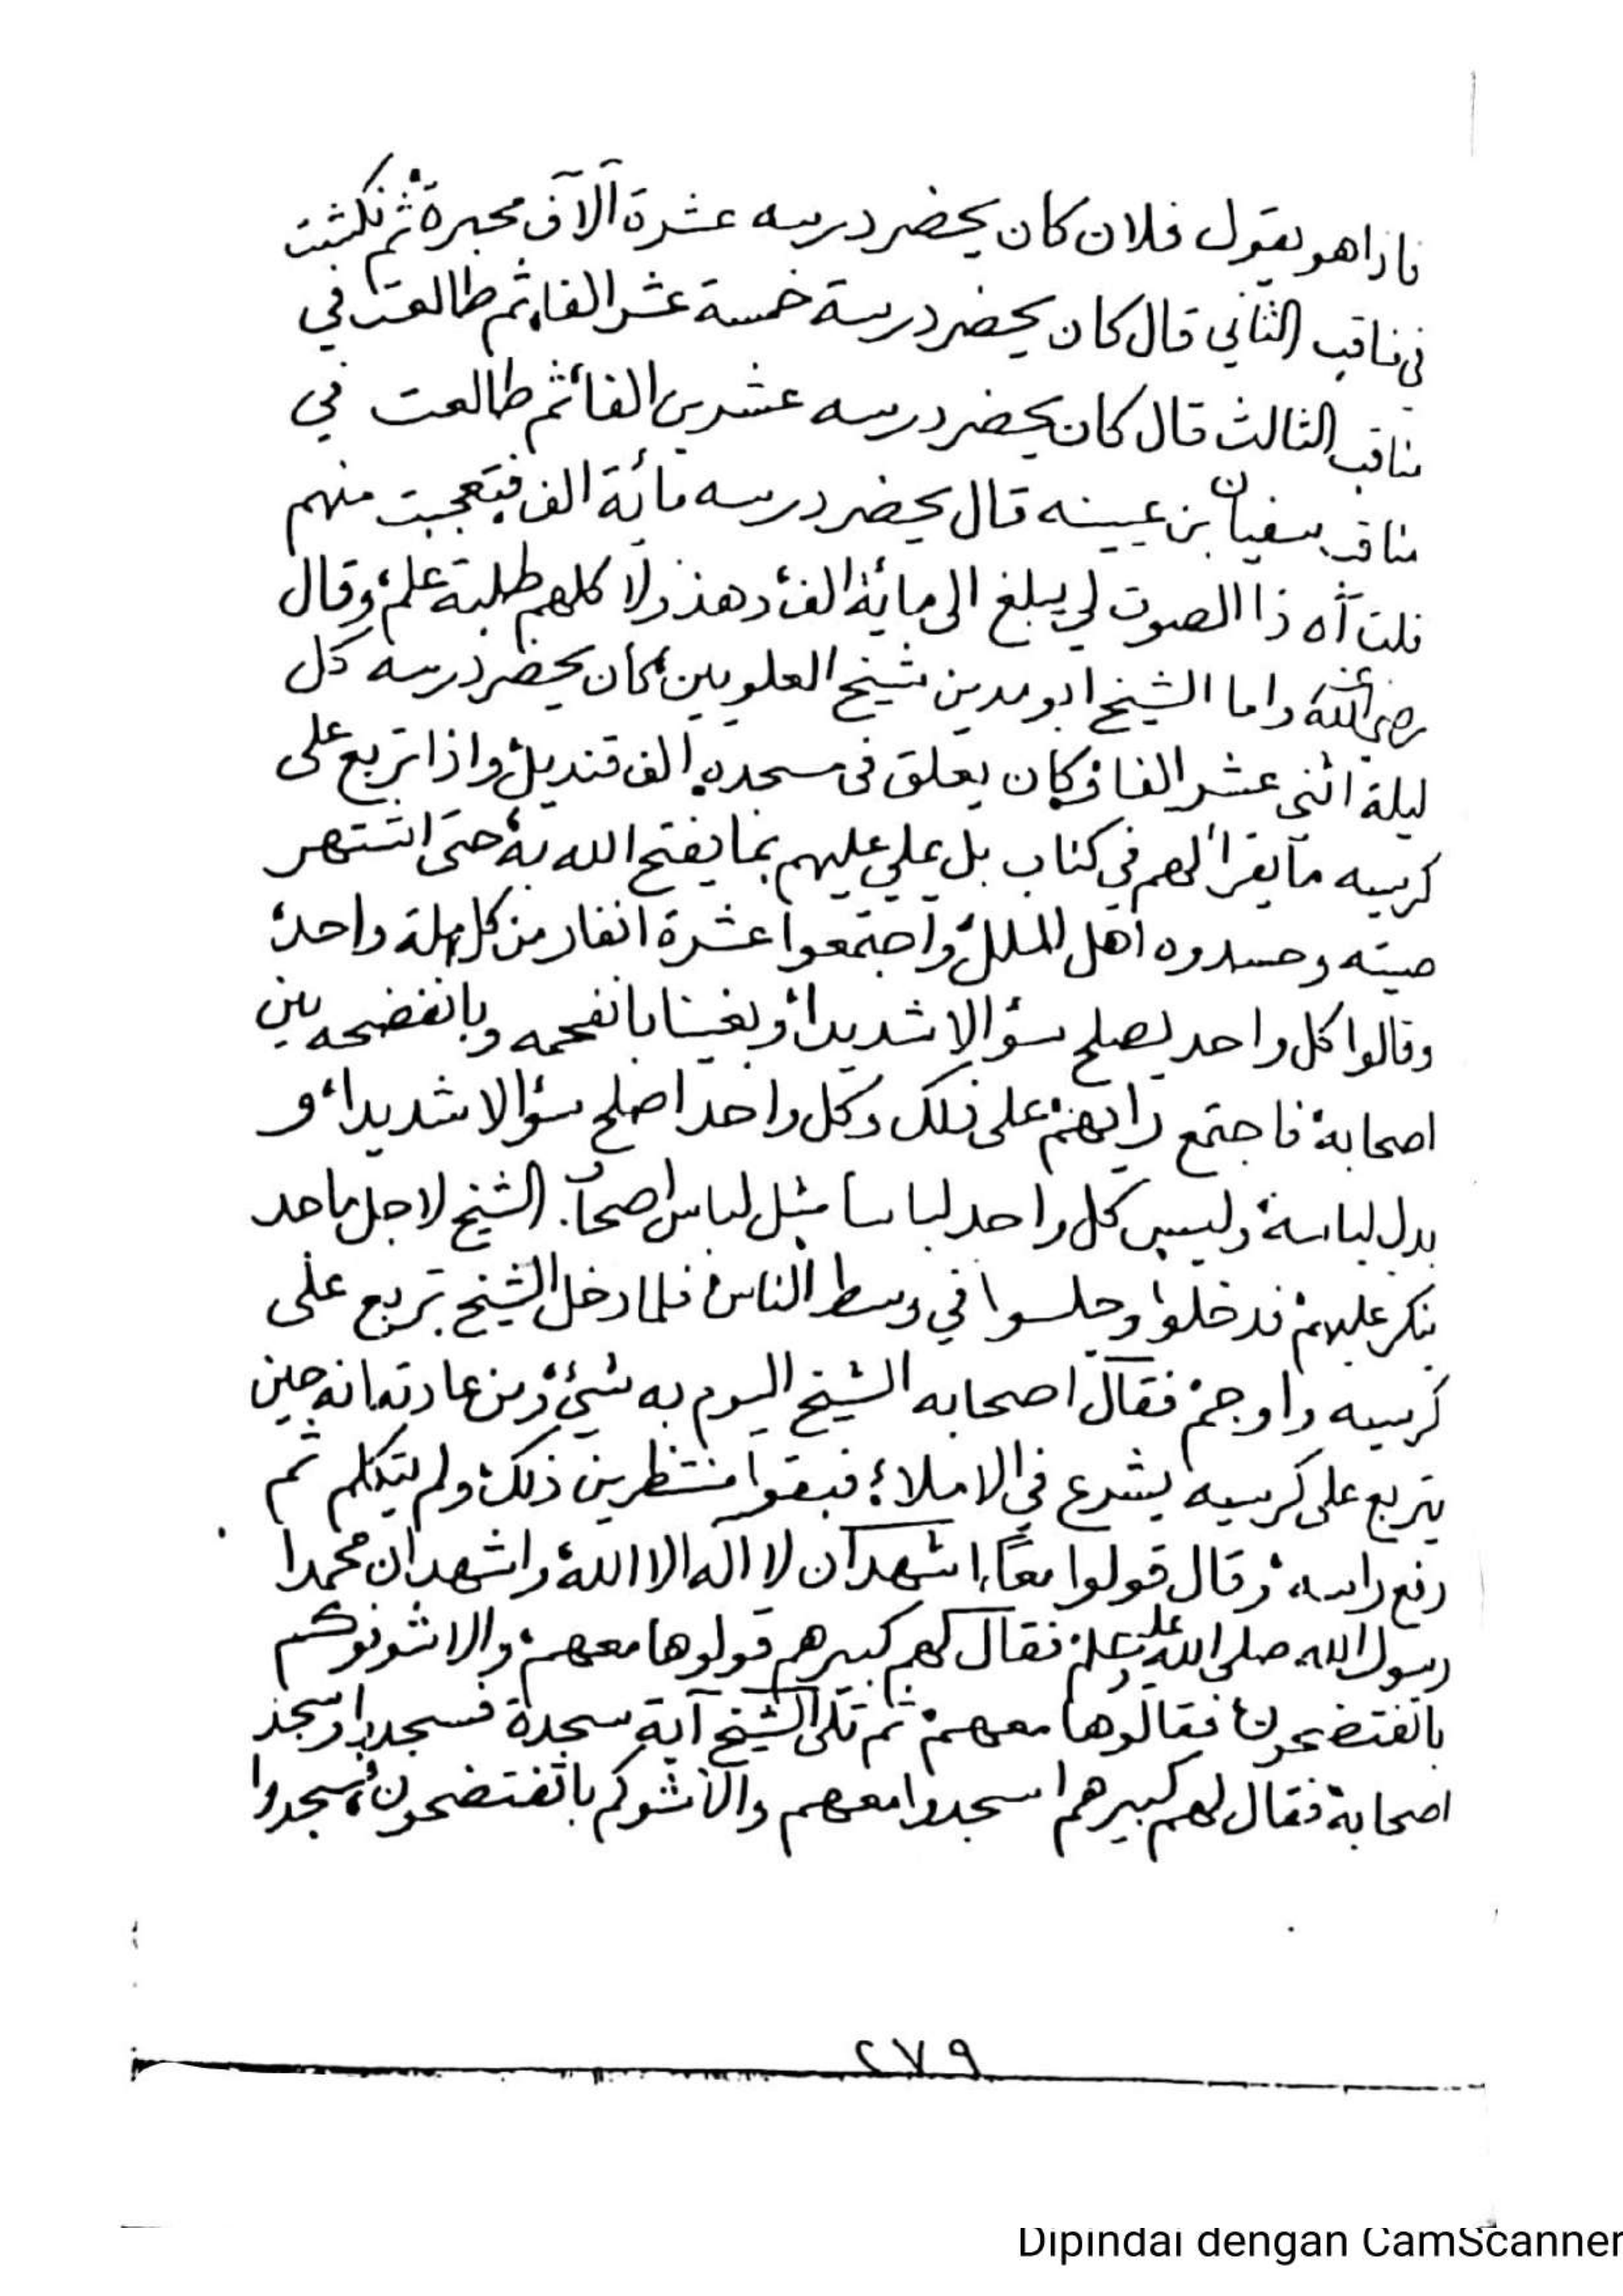 فاذا هو يقول فلان كان يحضر درسه عشرة آلآف محبرة ثم نكثت
في مناقب الثاني قال كان يحضر درسة خمسة عشر الفا، ثم طالعت في
مناقب الثالث قال كان يحضر درسه عشرين الفا، ثم طالعت في
مناقب سفيان بن عيينه قال يحضر درسه مائة الف فتعجبت منهم
قلت آه ذا الصوت لي يبلغ الى مائة الف، وهذولا كلهم طلبة علم، وقال
رضي الله عنه واما الشيخ ابو مدين شيخ العلويين، كان يحضر درسه كل
ليلة اثني عشر الفا، وكان يعلق في مسجده الف قنديل، واذا تربع على
كرسيه ما يقرا لهم في كتاب بل يملي عليهم بما يفتح الله به، حتى اشتهر
صيته وحسدوه اهل الملل، واجتمعوا عشرة انفار من كل ملة واحد،
وقالوا كل واحد يصلح سؤالا شديدا، وبغينا بانفحمه وبانفضحه بين
اصحابه، فاجتمع رايهم على ذلك وكل واحد اصلح سؤالا شديدا، و
بدل لباسه، ولبس كل واحد لباسا مثل لباس اصحاب الشيخ لاجل ماحد
ينكر عليهم، فدخلوا وجلسوا في وسط الناس، فلما دخل الشيخ تربع على
كرسيه واوجم، فقال اصحابه الشيخ اليوم به شيء، ومن عادته انه حين
يتربع على كرسيه يشرع في الاملاء، فبقوا منتظرين ذلك، ولم يتكلم ثم
رفع راسه، وقال قولوا معاً، اشهد ان لا اله الا الله، واشهد ان محمدا
رسول الله صلى الله عليه وسلم، فقال لهم كبيرهم قولوها معهم، والا شونوكم
باتفتضحون، فقالوها معهم، ثم تلى الشيخ آية سجدة فسجد، وسجد
اصحابه، فقال لهم كبيرهم اسجدوا معهم والا شوكم باتفتضحون، فسجدوا
٢٧٩
Dipindai dengan CamScanner